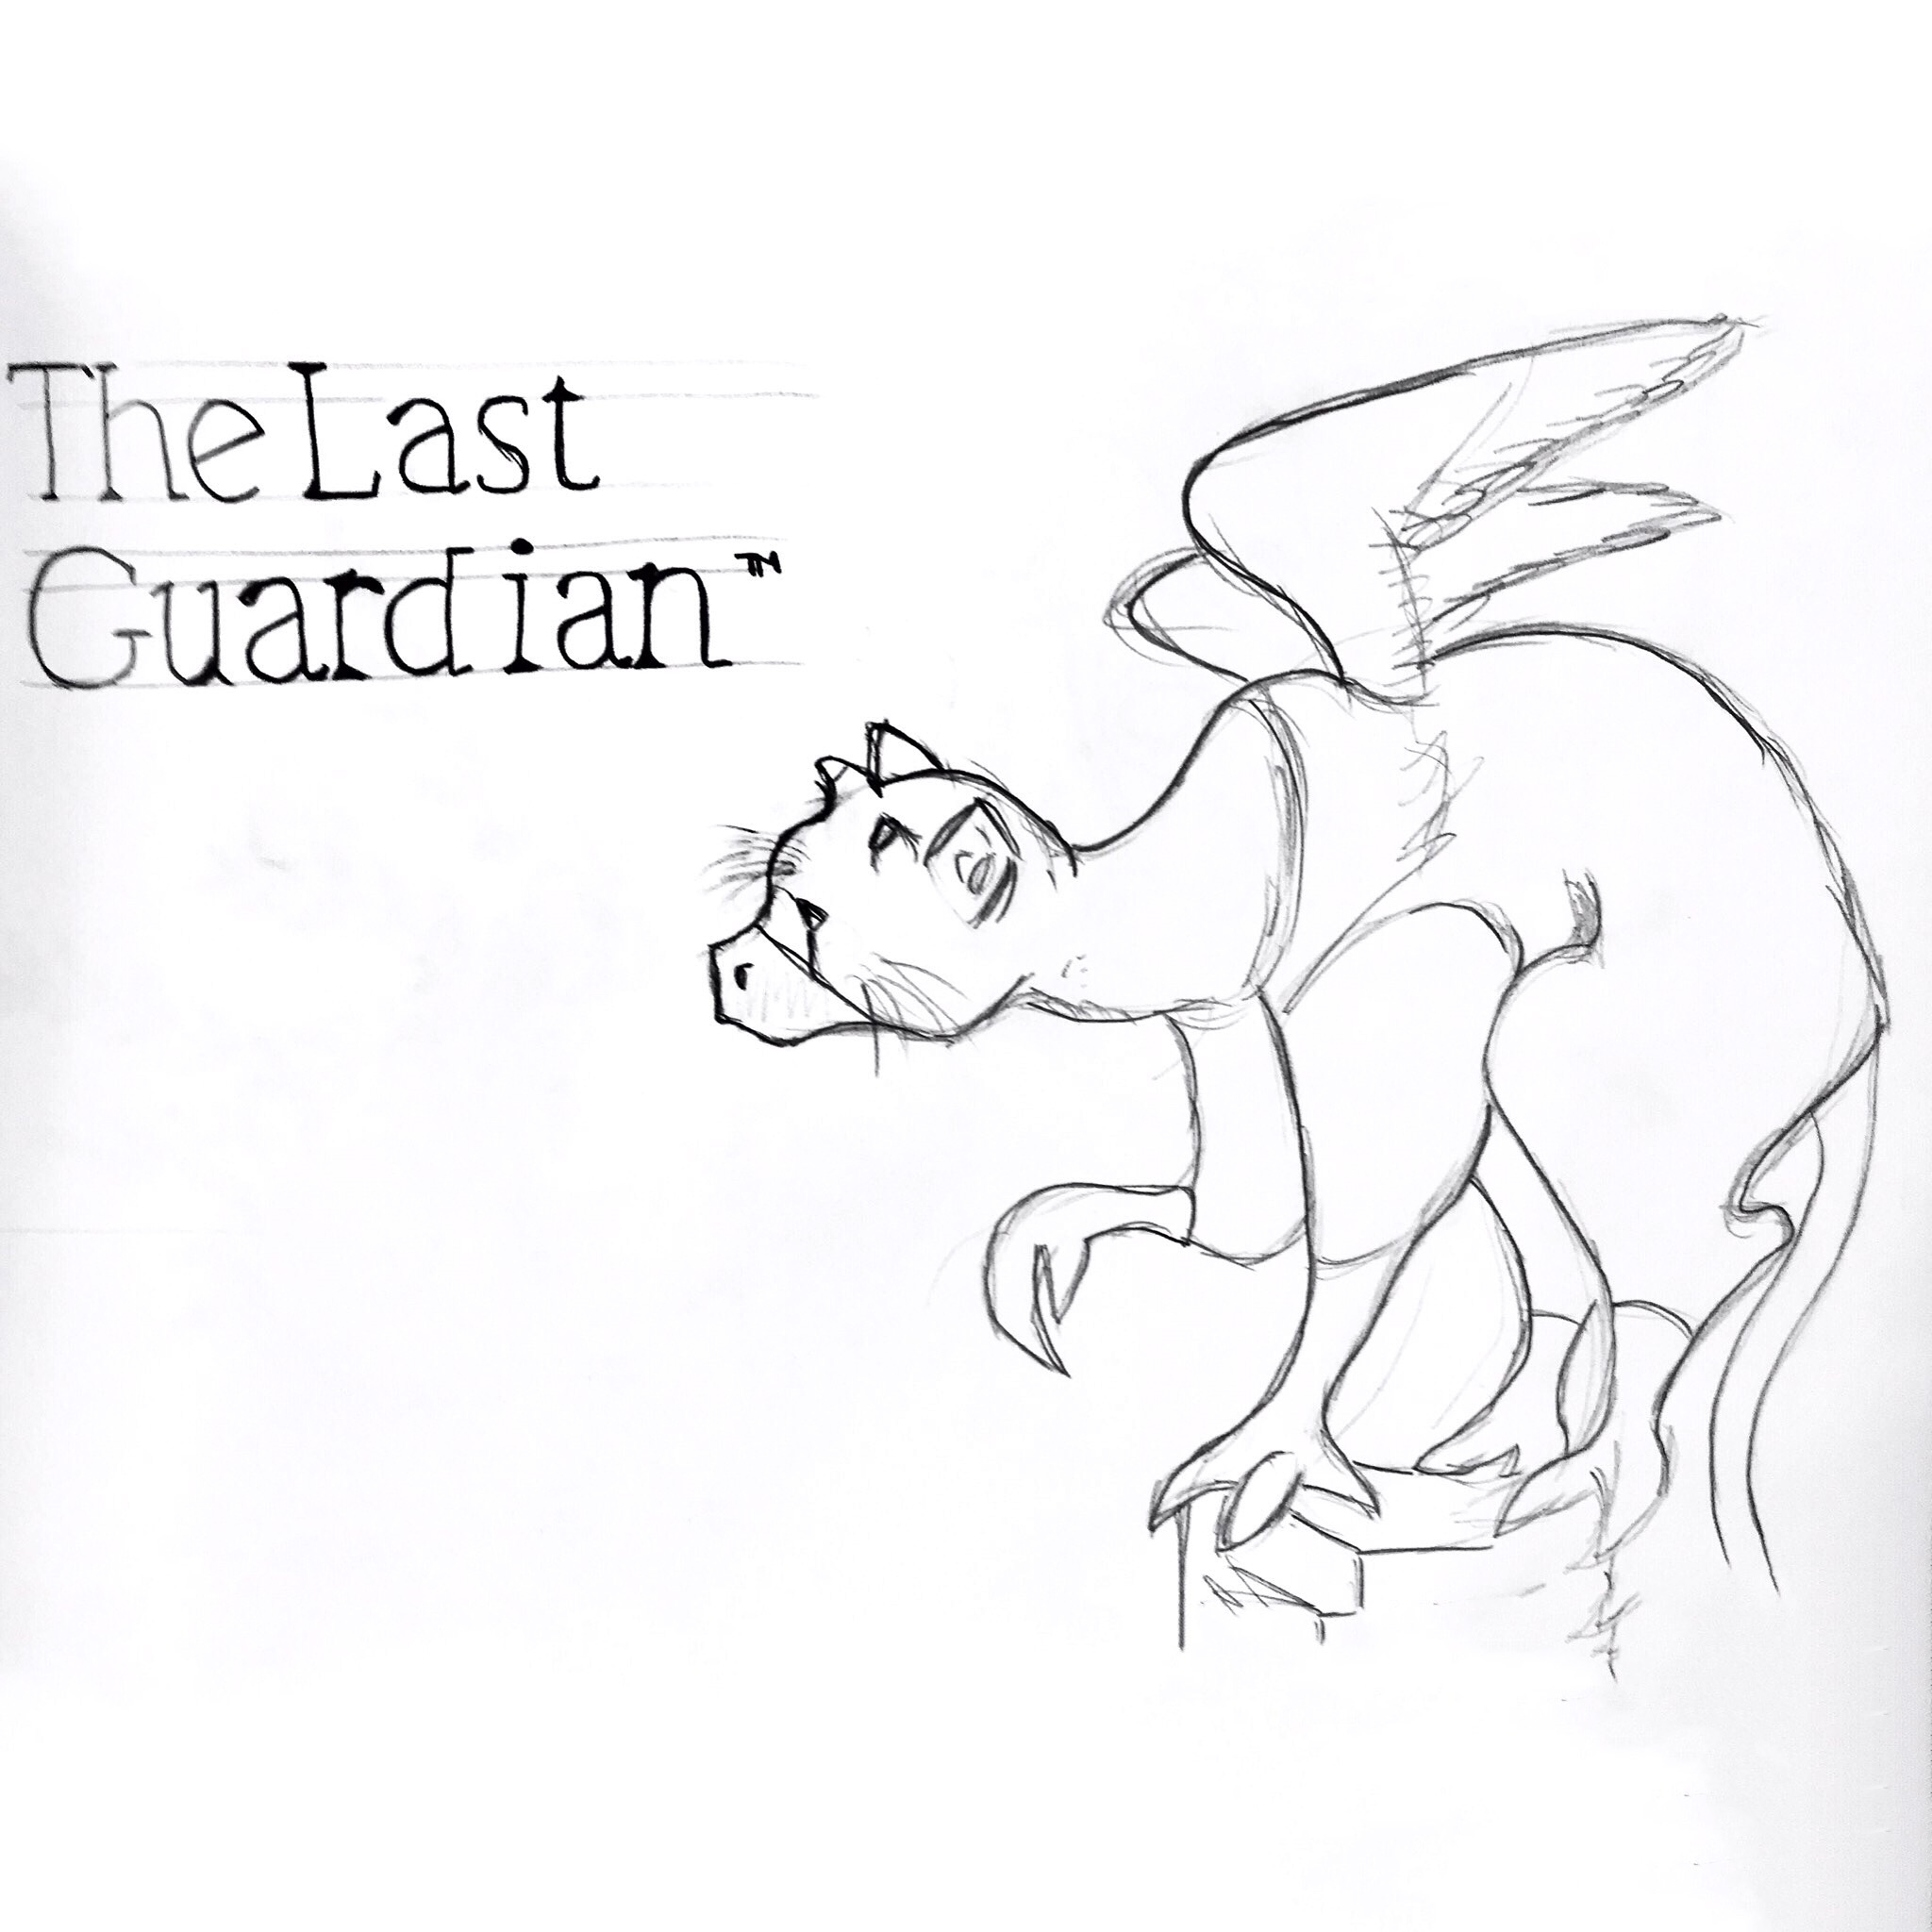 The Last
Guardian™